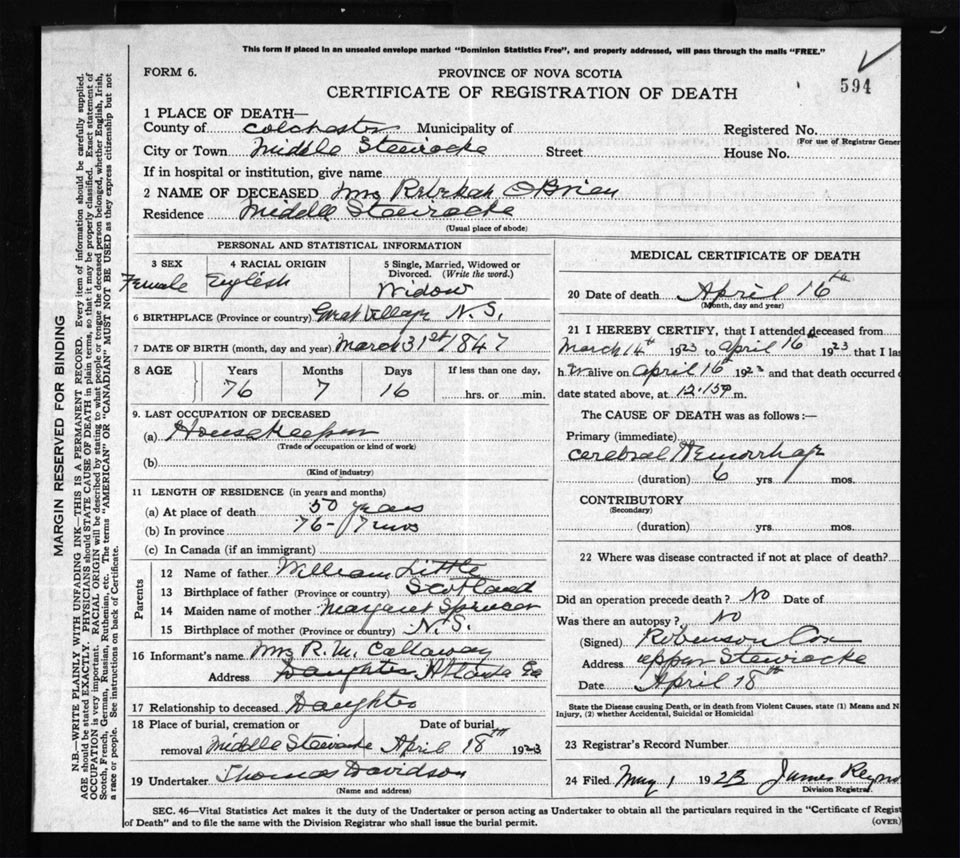 This form if placed in an unsealed envelope marked "Dominion Statistics Free", and properly addressed, will pass through the mails "FREE."
FORM 6.
PROVINCE OF NOVA SCOTIA
594
CERTIFICATE OF REGISTRATION OF DEATH
1 PLACE OF DEATH—
County of Colchester Municipality of Registered No.
(For use of Registrar Gener
City or Town Middle Stewiacke Street House No.
If in hospital or institution, give name
2 NAME OF DECEASED Mrs Rebekah O'Brien
Residence Middle Stewiacke
(Usual place of abode)
PERSONAL AND STATISTICAL INFORMATION
3 SEX 4 RACIAL ORIGIN 5 Single, Married, Widowed or Divorced. (Write the word.)
Female English Widow
6 BIRTHPLACE (Province or country) Great Village N.S.
7 DATE OF BIRTH (month, day and year) March 31st 1847
8 AGE Years Months Days If less than one day,
76 7 16 hrs. or min.
9. LAST OCCUPATION OF DECEASED
(a) Housekeeper
(Trade or occupation or kind of work)
(b)
(Kind of industry)
11 LENGTH OF RESIDENCE (in years and months)
(a) At place of death 50 years
(b) In province 76 - 7 mos
(c) In Canada (if an immigrant)
Parents
12 Name of father William Little
13 Birthplace of father (Province or country) Scotland
14 Maiden name of mother Margaret Spencer
15 Birthplace of mother (Province or country) N.S.
16 Informant's name Mrs R. M. Callaway
Address Daughter Atlanta Ga
17 Relationship to deceased Daughter
18 Place of burial, cremation or Date of burial
removal Middle Stewiacke April 18th 1923
19 Undertaker Thomas Davidson
(Name and address)
MEDICAL CERTIFICATE OF DEATH
20 Date of death April 16th
(Month, day and year)
21 I HEREBY CERTIFY, that I attended deceased from
March 14th 1923 to April 16th 1923 that I las
h alive on April 16 1923 and that death occurred o
date stated above, at 12.15 m.
The CAUSE OF DEATH was as follows:—
Primary (immediate)
Cerebral Hemorrhage
(duration) 6 yrs. mos.
CONTRIBUTORY
(Secondary)
(duration) yrs. mos.
22 Where was disease contracted if not at place of death?
Did an operation precede death? No Date of
Was there an autopsy? No
(Signed) Robinson Cox
Address Upper Stewiacke
Date April 18th
State the Disease causing Death, or in death from Violent Causes, state (1) Means and N
Injury, (2) whether Accidental, Suicidal or Homicidal
23 Registrar's Record Number
24 Filed May 1 1923 James Reyno
Division Registrar.
SEC. 46—Vital Statistics Act makes it the duty of the Undertaker or person acting as Undertaker to obtain all the particulars required in the "Certificate of Regist
of Death" and to file the same with the Division Registrar who shall issue the burial permit.
(OVER)
MARGIN RESERVED FOR BINDING
N.B.—WRITE PLAINLY WITH UNFADING INK—THIS IS A PERMANENT RECORD. Every item of information should be carefully supplied.
AGE should be stated EXACTLY. PHYSICIANS should STATE CAUSE OF DEATH in plain terms, so that it may be properly classified. Exact statement of
OCCUPATION is very important. RACIAL ORIGIN will be described by stating to what people or tongue the deceased person belonged, whether English, Irish,
Scotch, French, German, Russian, Ruthenian, etc. The terms "AMERICAN" OR "CANADIAN" MUST NOT BE USED as they express citizenship but not
a race or people. See instructions on back of Certificate.